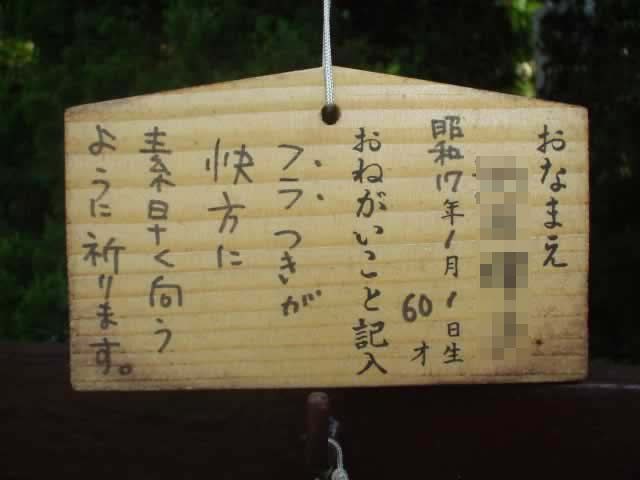 おなまえ
昭和17年1月1日生
60才
おねがいごと記入
フラつきが
快方に
素早く向う
ように祈ります。